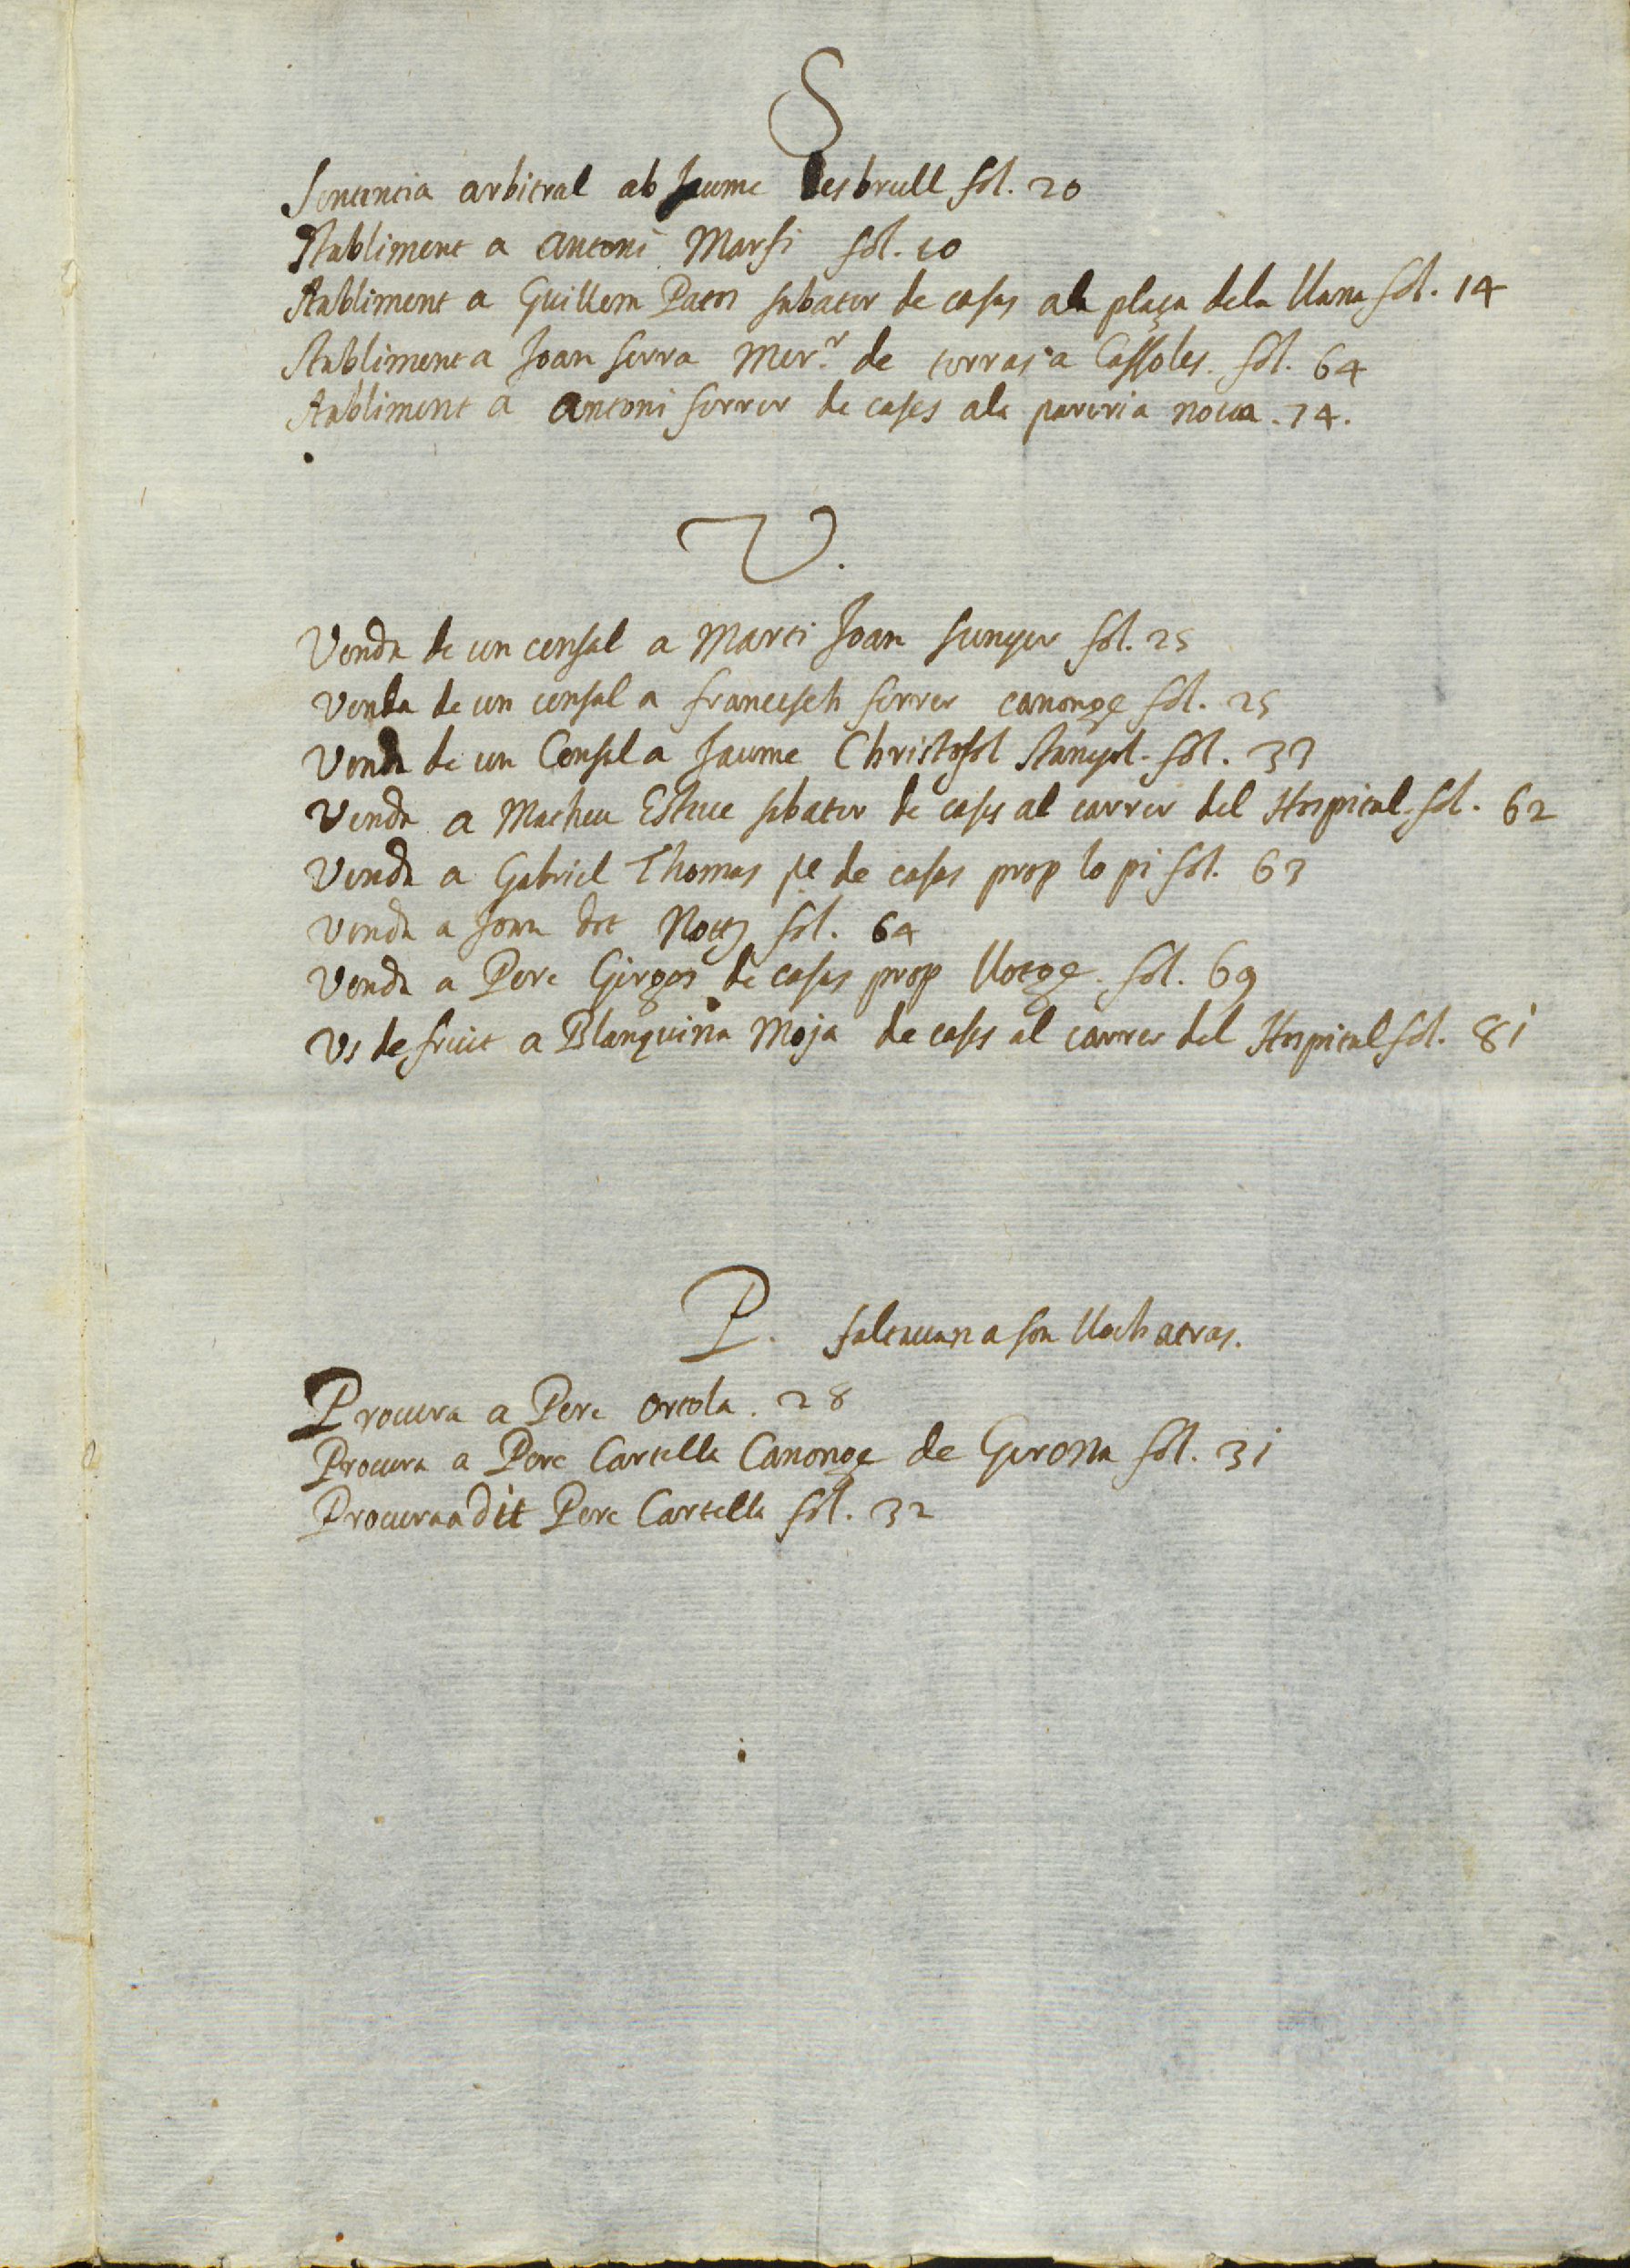 S
Sentencia arbitral ab Jaume Desbrull fol. 20
Stabliment a Antoni Marsi fol. 10
Stabliment a Guillem Pator sabater de casas ala plaça dela llana fol. 14
Stabliment a Joan Serra Mer.r de terras a Cassoles. fol. 64
Stabliment a Antoni ferrer de cases ala pareria nova. 74.
V.
Venda de un censal a Marti Joan Sunyer fol. 25
Venda de un censal a francesch ferrer canonge fol. 25
Venda de un Censal a Jaume Christofol Stanyol. fol. 33
Venda a Matheu Esteve sabater de cases al carrer del Hospital. fol. 62
Venda a Gabriel Thomas de casas prop lo pi fol. 63
Venda a Joan fol. 64
Venda a Pere Girgos de casas prop llotge. fol. 69
Us de fruit a Blanquina Moja de cases al carrer del Hospital fol. 81
P. faltavan a son lloch atras.
Procura a Pere Ortola. 28
Procura a Pere Cartella Canonge de Gerona fol. 31
Procura a dit Pere Cartella fol. 32